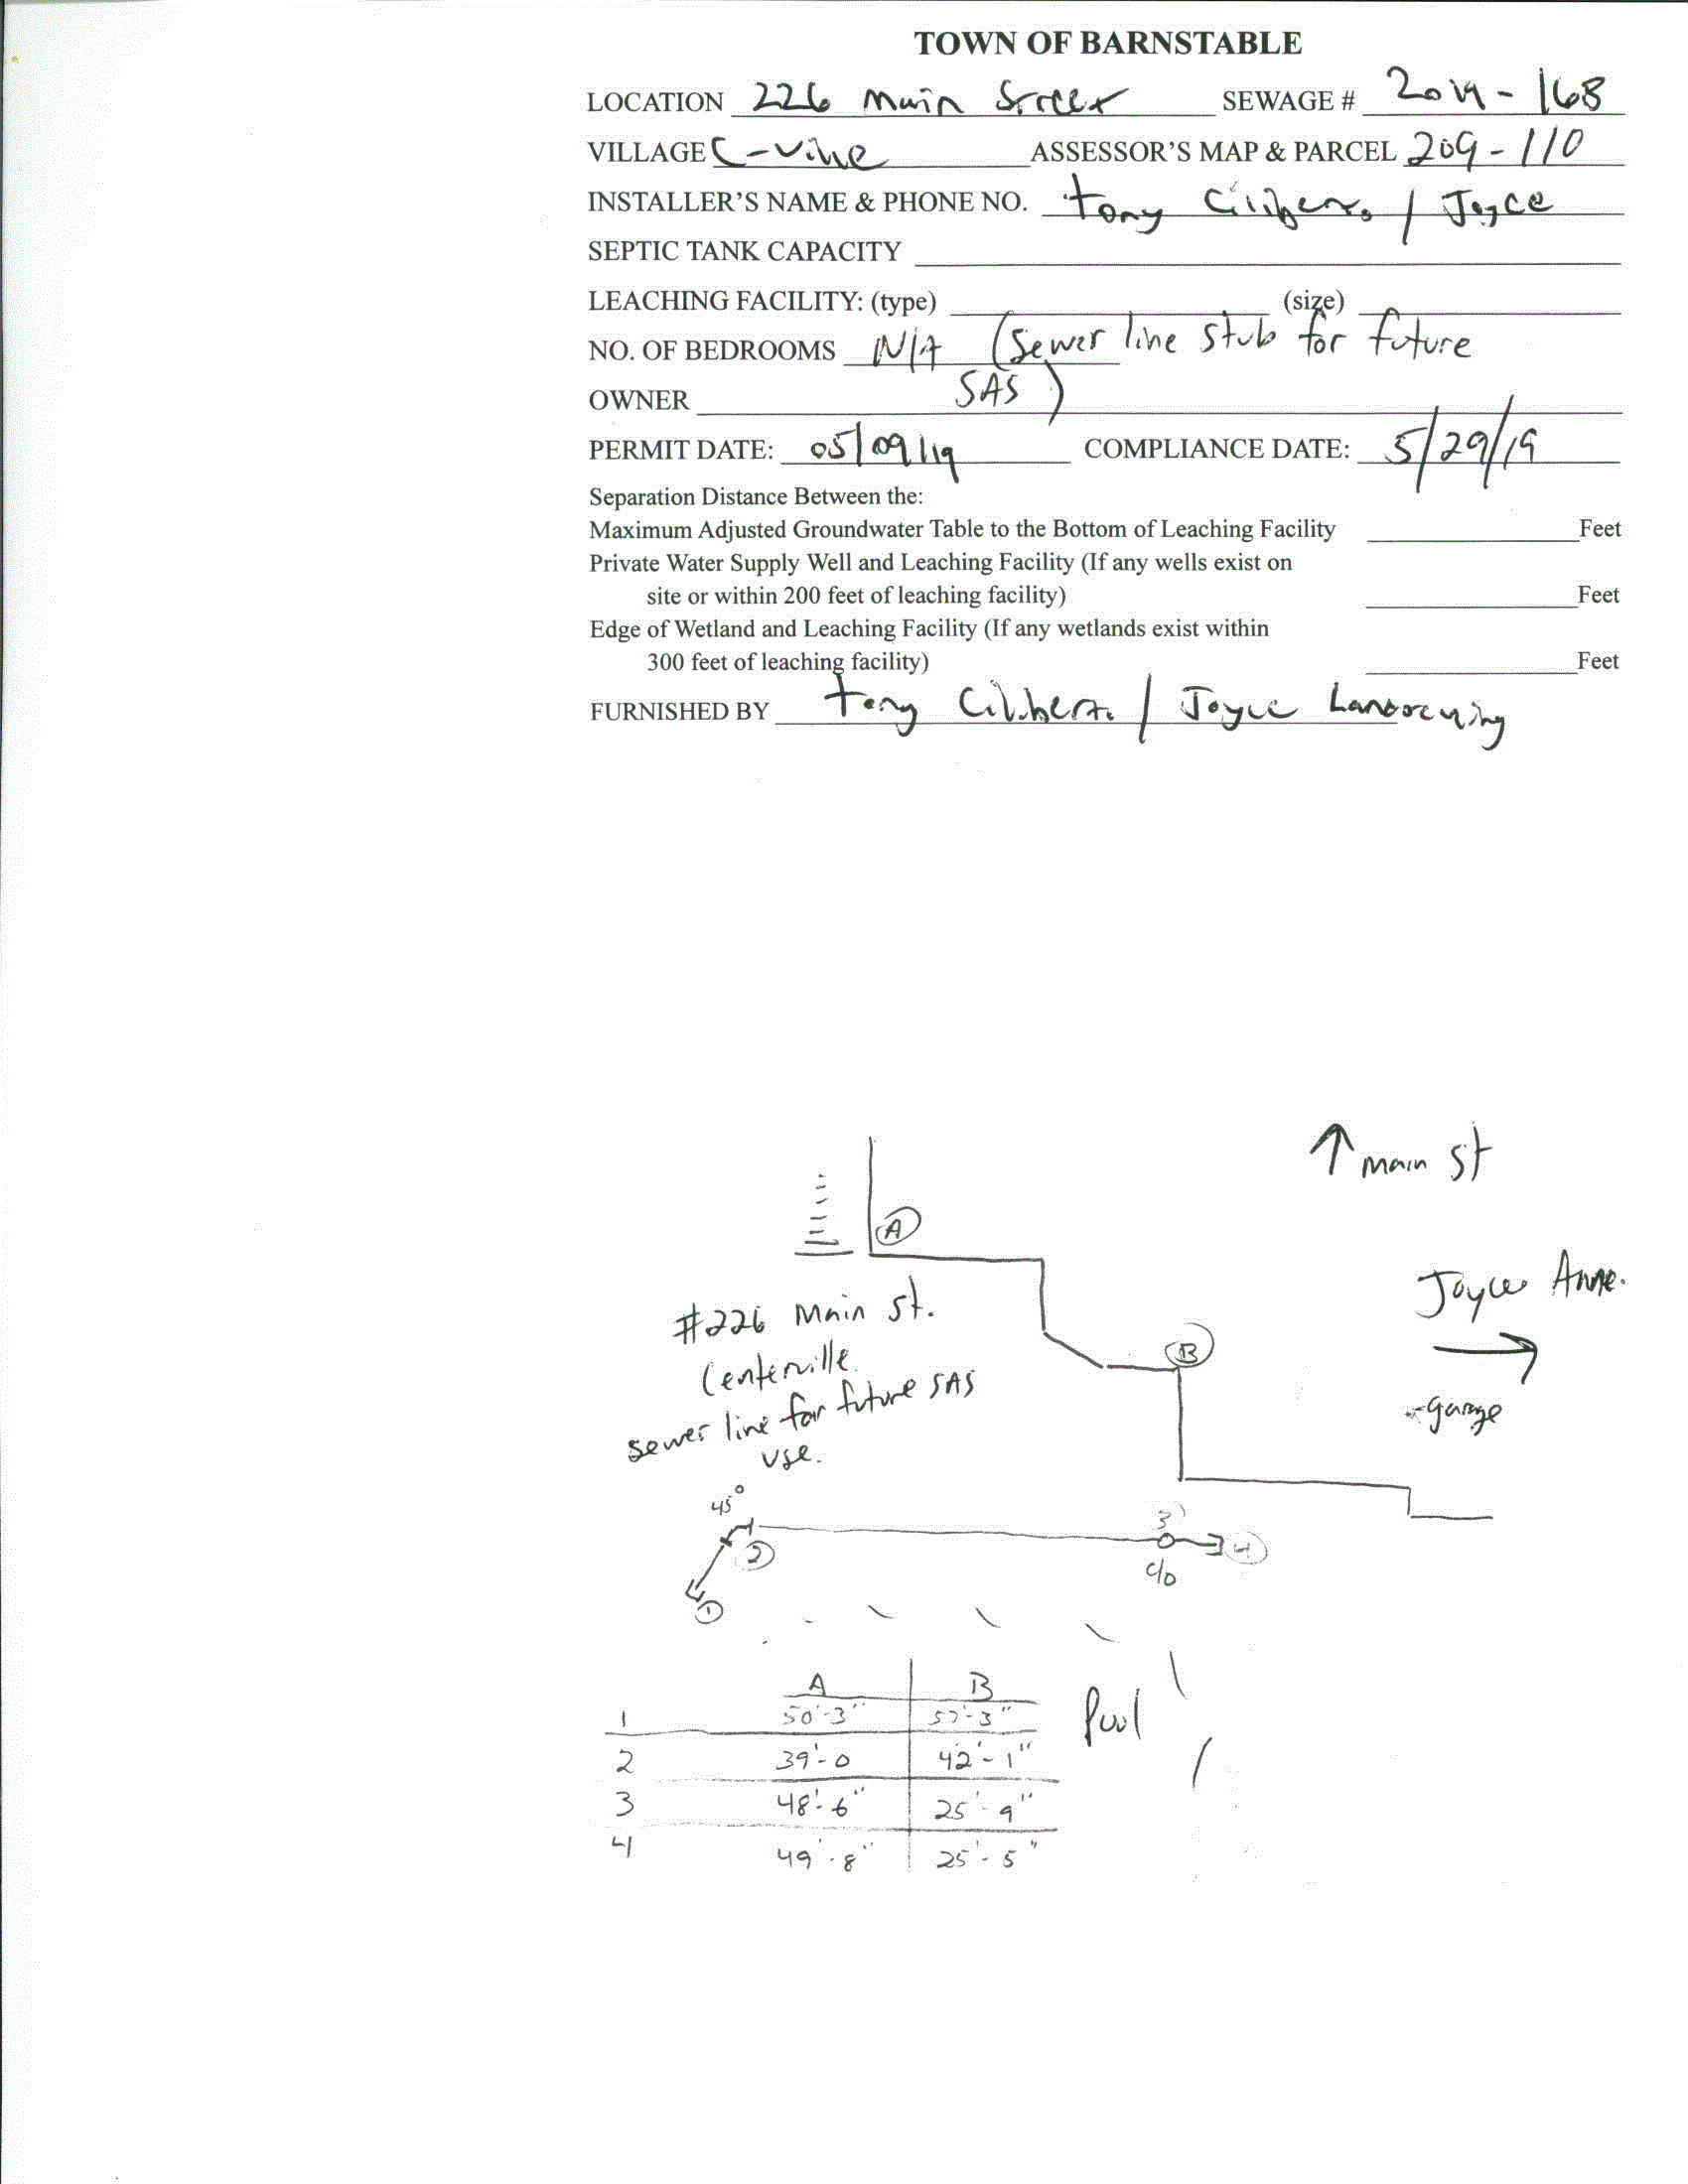 TOWN OF BARNSTABLE
LOCATION 226 Main Street SEWAGE # 2019-168
VILLAGE C-ville ASSESSOR'S MAP & PARCEL 209-110
INSTALLER'S NAME & PHONE NO. Tony Ciliberto / Joyce
SEPTIC TANK CAPACITY
LEACHING FACILITY: (type) (size)
NO. OF BEDROOMS N/A (Sewer line stub for future
OWNER SAS)
PERMIT DATE: 05/09/19 COMPLIANCE DATE: 5/29/19
Separation Distance Between the:
Maximum Adjusted Groundwater Table to the Bottom of Leaching Facility Feet
Private Water Supply Well and Leaching Facility (If any wells exist on
site or within 200 feet of leaching facility) Feet
Edge of Wetland and Leaching Facility (If any wetlands exist within
300 feet of leaching facility) Feet
FURNISHED BY Tony Ciliberto / Joyce Landscaping
↑ Main St
A
Joyce Anne.
#226 Main St.
B
Centerville
sewer line for future SAS
use.
→
garage
45°
2
3
4
c/o
1
A B
1 50'-3" 57'-3"
Pool
2 39'-0 42'-1"
3 48'-6" 25'-9"
4 49'-8" 25'-5"